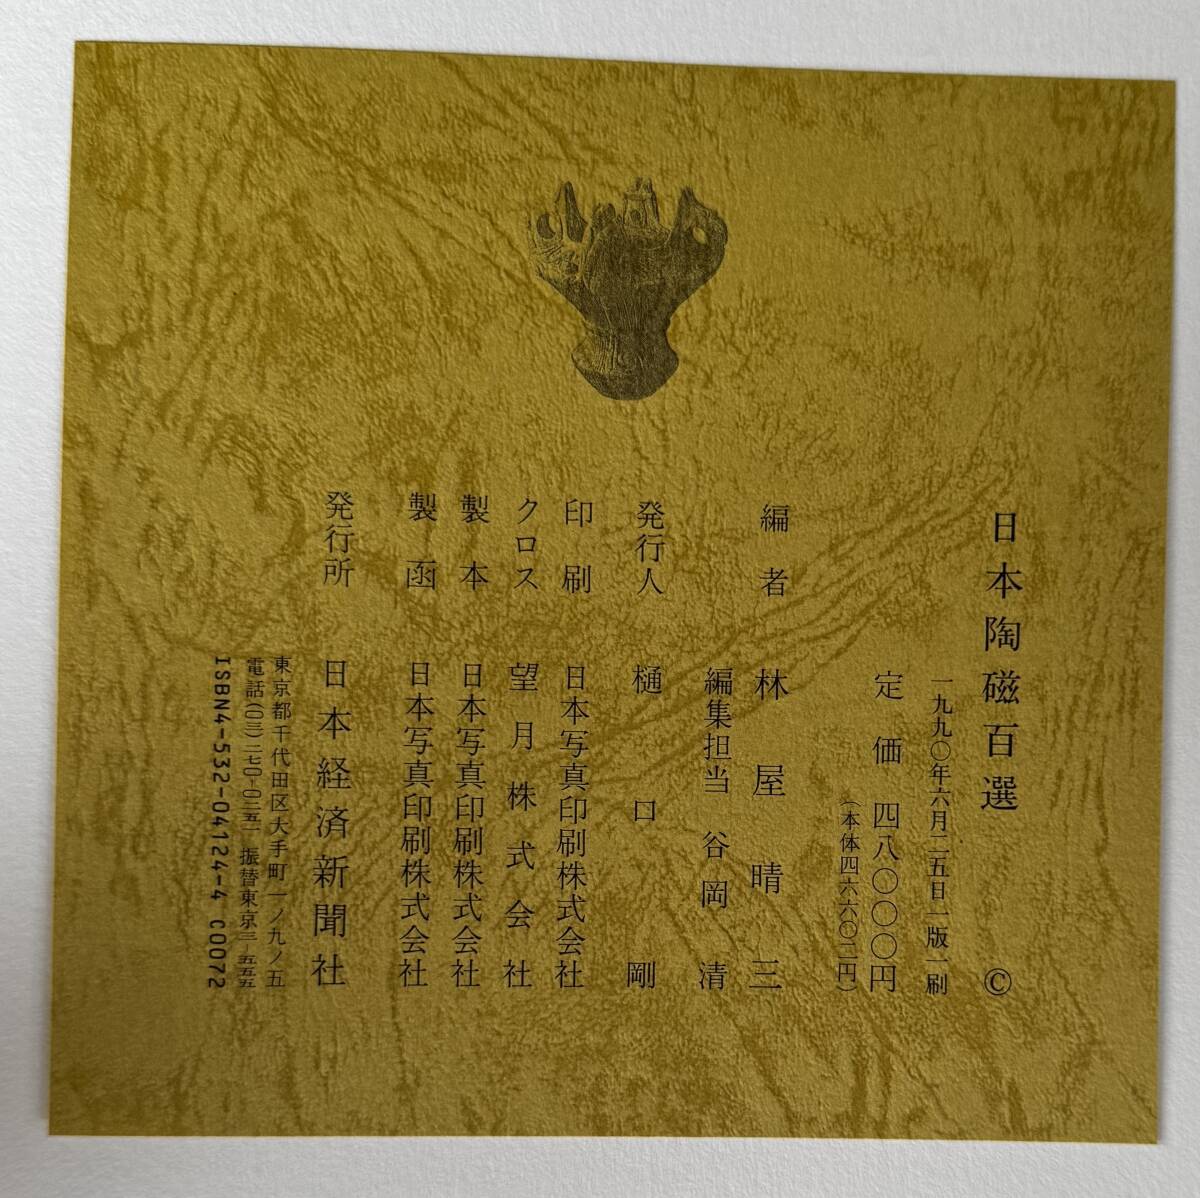 日本陶磁百選 ©
一九九〇年六月二五日一版一刷
定価 四八〇〇〇円
(本体四六六〇二円)
編者 林屋晴三
編集担当 谷岡清
発行人 樋口剛
印刷 日本写真印刷株式会社
クロス 望月株式会社
製本 日本写真印刷株式会社
製函 日本写真印刷株式会社
発行所 日本経済新聞社
東京都千代田区大手町一ノ九ノ五
電話(〇三)二七〇-〇二五一 振替東京三-五五五
ISBN4-532-04124-4 C0072